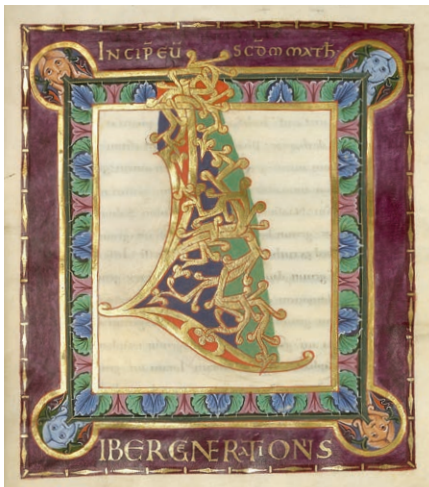 INCIP̄ EŪ SCD̄M MATH̄
L
IBER GENERATIONS